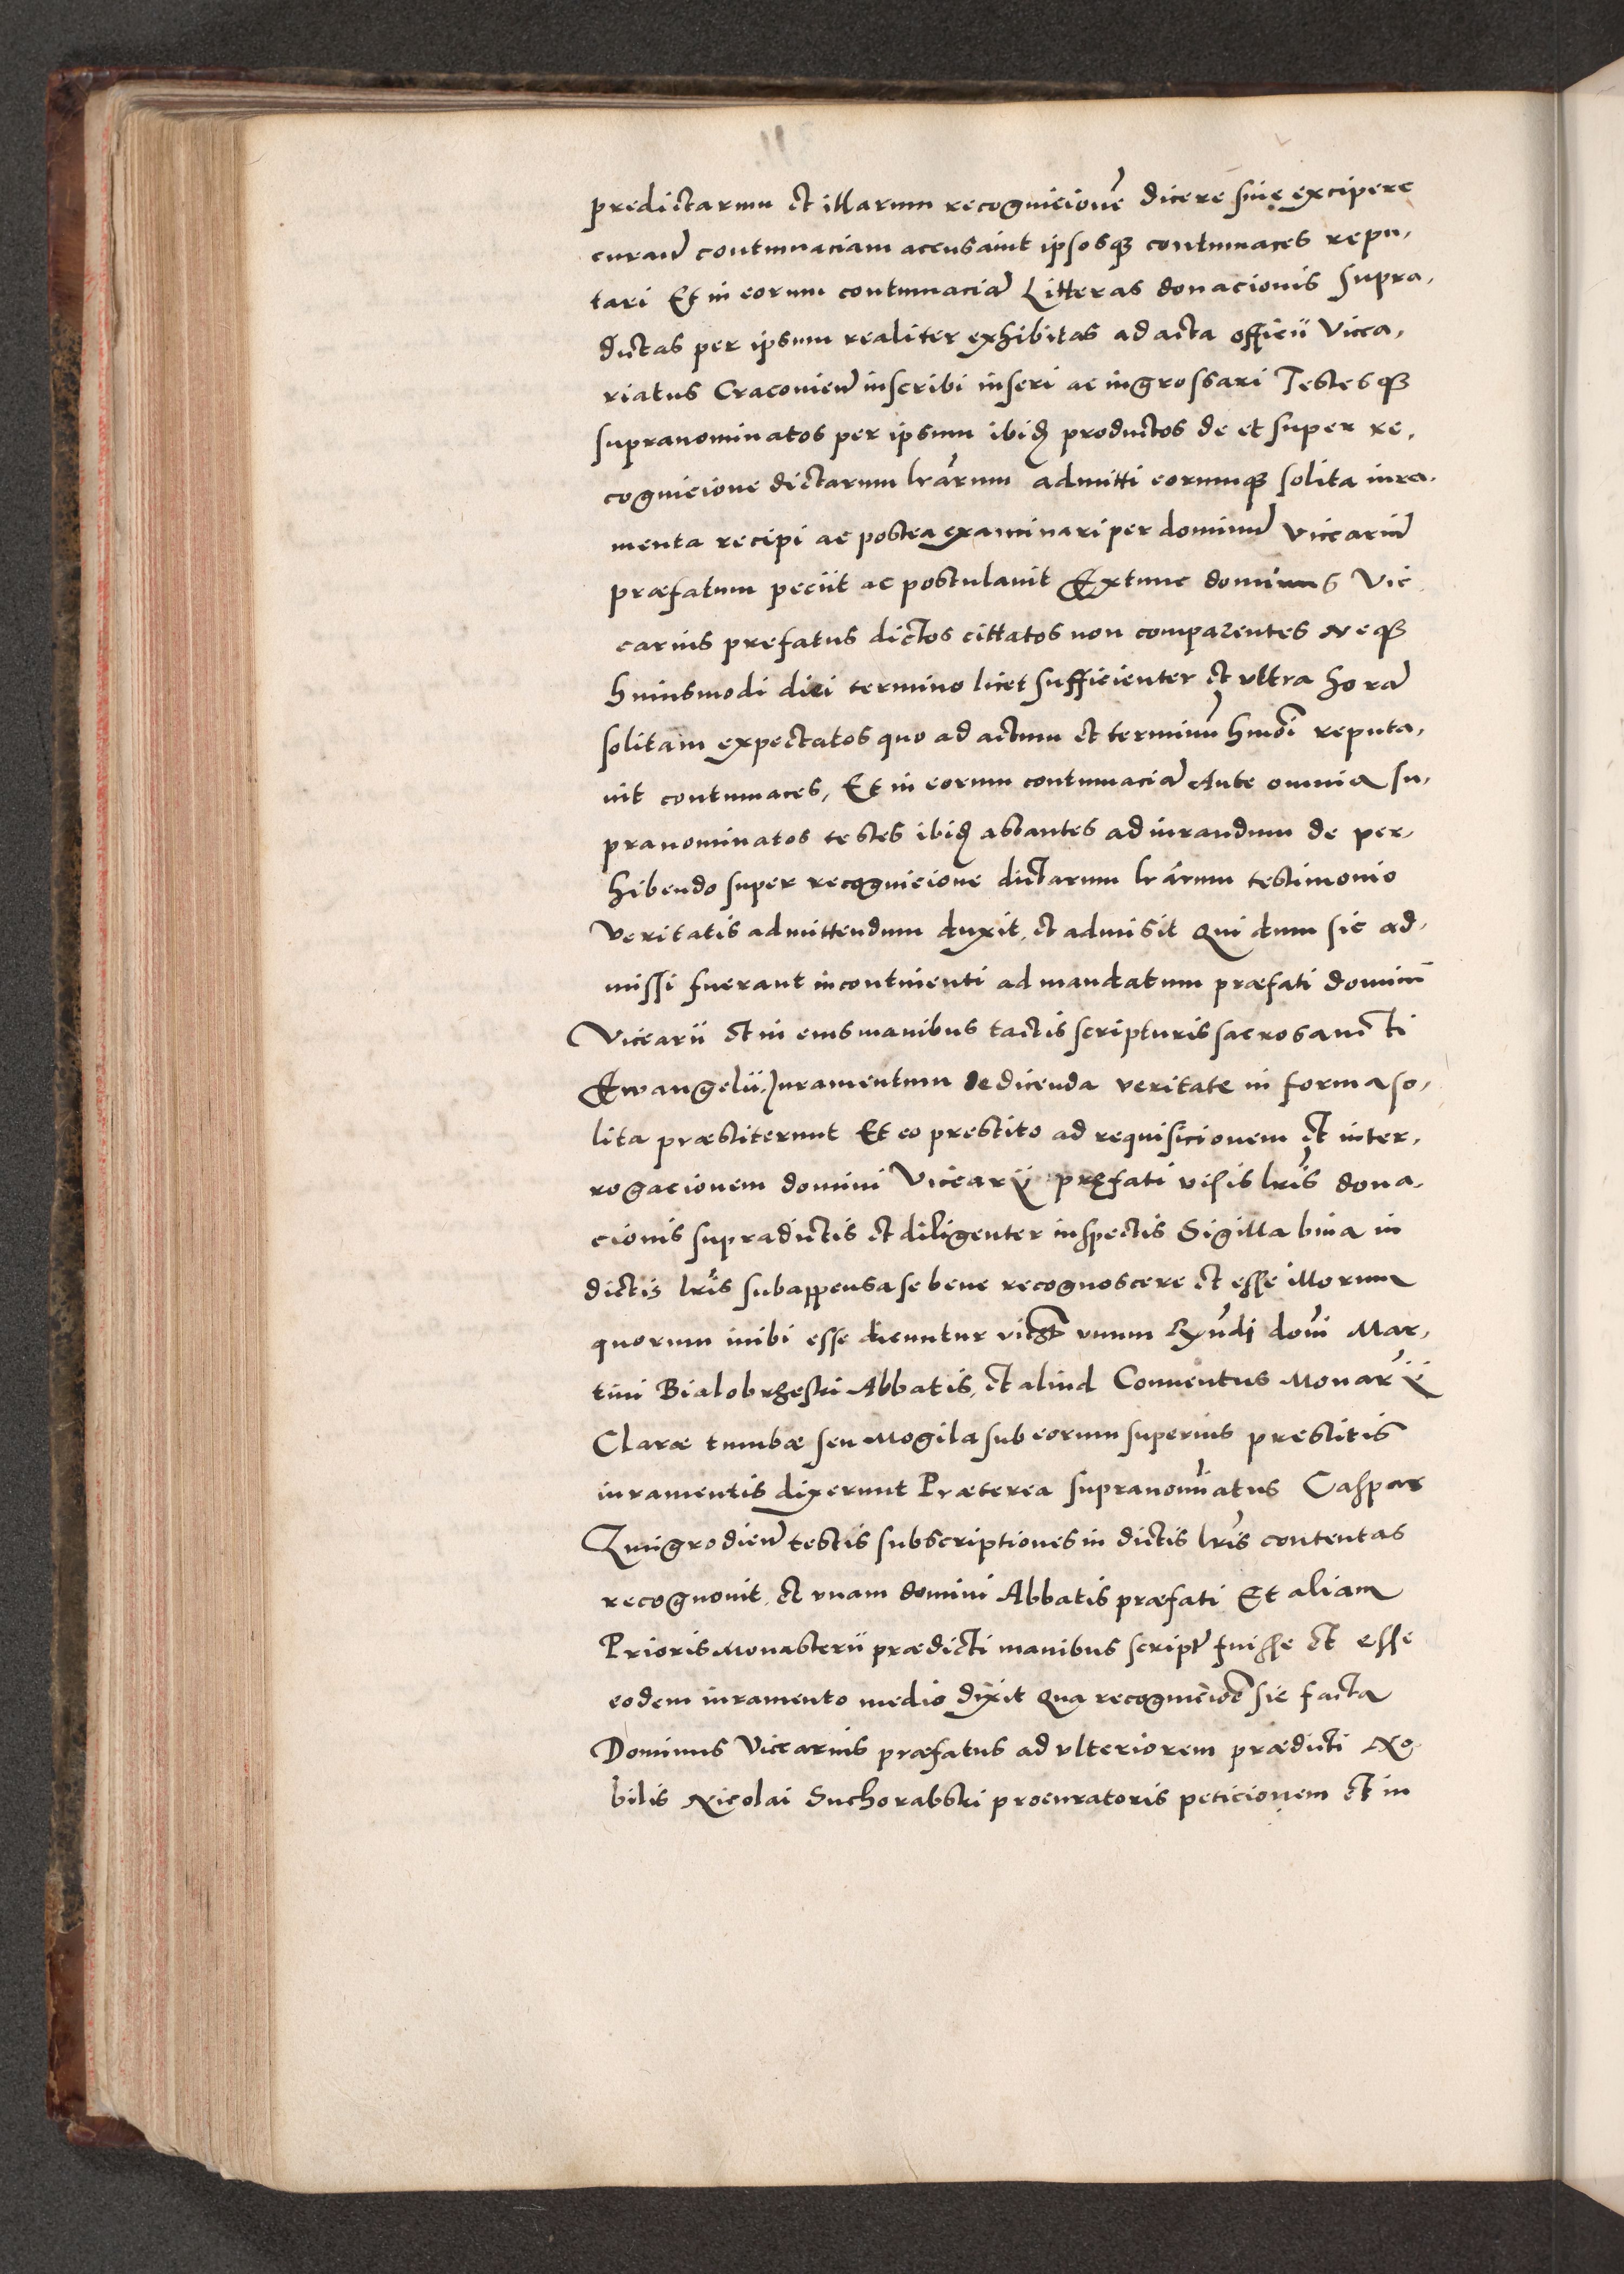 predictarum et illarum recognicionē dicere siue excipere
curaꝝ contumaciam accusauit ipsosqꝫ contumaces repu,
tari Et in eorum contumaciā Litteras donacionis supra,
dictas per ipsum realiter exhibitas ad acta officii Vicca,
riatus Cracovieñ inscribi inseri ac ingrossari Testesqꝫ
supranominatos per ipsum ibid̨ productos de et super re,
cognicione dictarum lrārum admitti eorumqꝫ solita iura,
menta recipi ac postea examinari per dominū Vicariū
præfatum peciit ac postulauit Extunc dominus Vic
carius prefatus dictos cittatos non comparentes Neqꝫ
huiusmodi diei termino licet sufficienter et vltra horā
solitam expectatos quo ad actum et terminū hmōi reputa,
uit contumaces, Et in eorum contumaciā Ante omnia su,
pranominatos testes ibid̨ astantes ad iurandum de per,
hibendo super recognicione dictarum lrārum testimonio
veritatis admittendum duxit, et admisit Qui dum sic ad,
missi fuerant incontinenti ad mandatum præfati domini
Vicarii et in eius manibus tactis scripturis sacrosancti
Ewangelii Iuramentum de dicenda veritate in forma so,
lita præstiterunt Et eo prestito ad requisicionem et inter,
rogacionem domini Vicarii præfati visis lrīs dona,
cionis supradictis et diligenter inspectis Sigilla bina in
dictis lrīs subappensa se bene recognoscere et esse illorum
quorum inibi esse dicuntur vidꝫ vnum Rṇdi domī Mar,
tini Bialobrheski Abbatis, et aliud Conuentus Monarīi
Claræ tumbæ seu Mogila sub eorum superius prestitis
iuramentis dixerunt Præterea supranoīatus Caspar
Zmigrodieñ testis subscriptiones in dictis lrīs contentas
recognouit, et vnam domini Abbatis præfati Et aliam
Prioris Monasterii prædicti manibus script̄ fuisse et esse
eodem iuramento medio dixit Qua recognicioē sic facta
Dominus Viccarius præfatus ad vlteriorem prædicti No
bilis Nicolai Suchorabski procuratoris peticionem et in